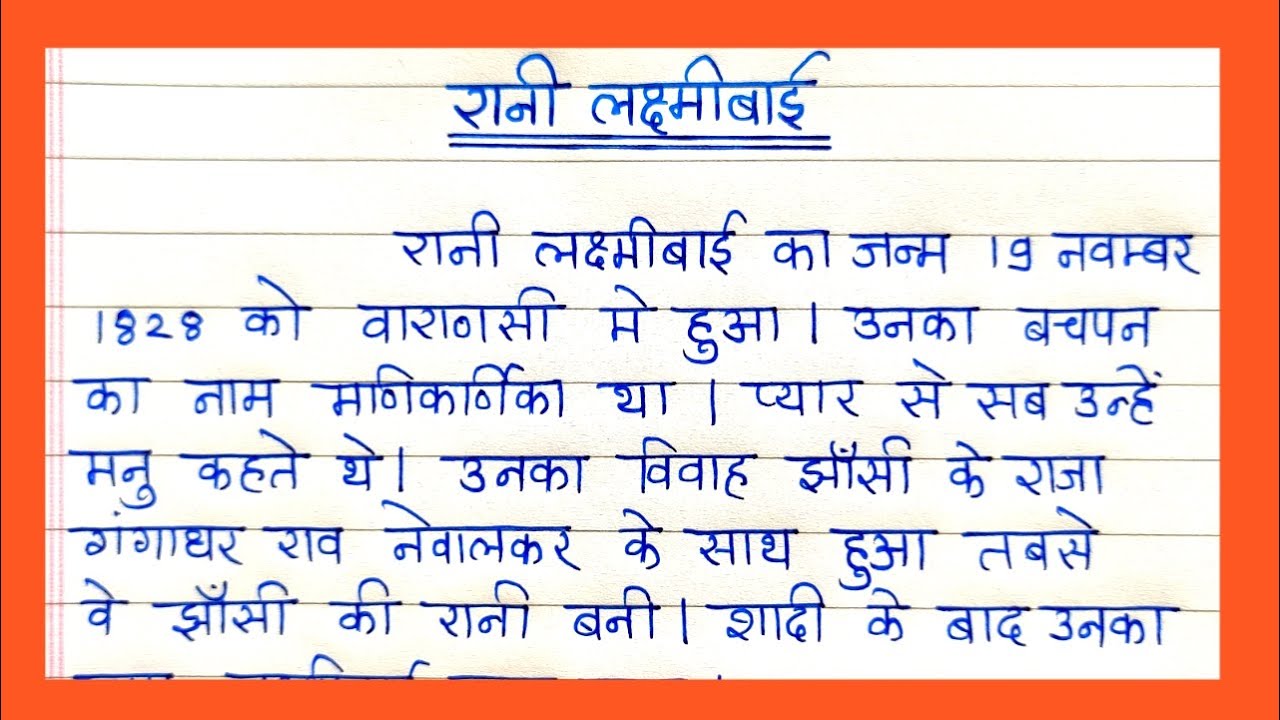 रानी लक्ष्मीबाई
रानी लक्ष्मीबाई का जन्म 19 नवम्बर
1828 को वाराणसी मे हुआ । उनका बचपन
का नाम मणिकर्णिका था । प्यार से सब उन्हें
मनु कहते थे। उनका विवाह झाँसी के राजा
गंगाधर राव नेवालकर के साथ हुआ तबसे
वे झाँसी की रानी बनी । शादी के बाद उनका